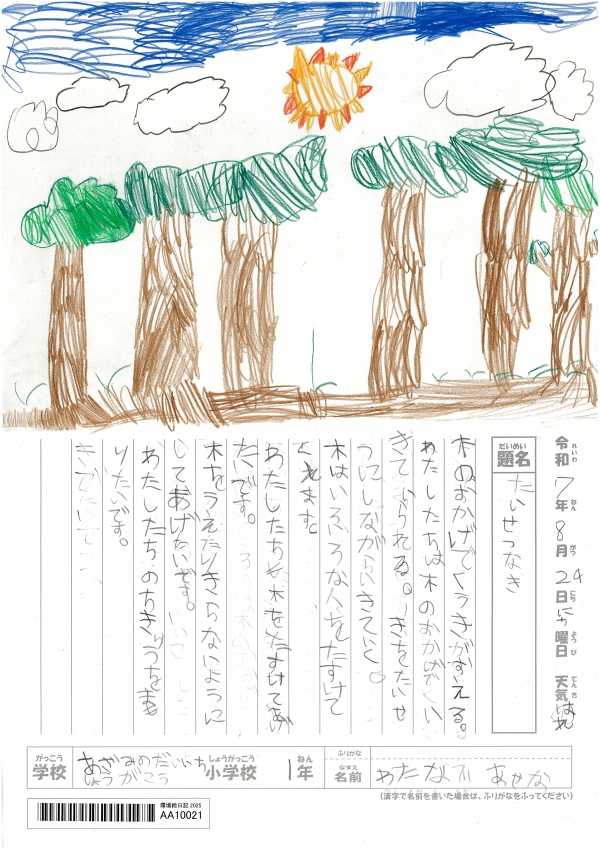 令和7年8月24日にち曜日 天気はれ
れいわ ねん がつ にち ようび てんき
だいめい
題名 たいせつなき
木のおかげでくうきがすえる。
わたしたちは木のおかげで
きて られる。きをたいせ
つにしながらいきていく。
木はいろいろな人をたすけて
くれます。
わたしたちも木をたすけてあげ
たいです。
木をうえたりきらないように
してあげたいです。
わたしたちのちきゅうをまも
りたいです。
がっこう しょうがっこう ねん ふりがな
学校 あざみのだいいち 小学校 1年 なまえ 名前 わたなべ
しょうがこう
(漢字で名前を書いた場合は、ふりがなをふってください)
環境絵日記 2025
AA10021